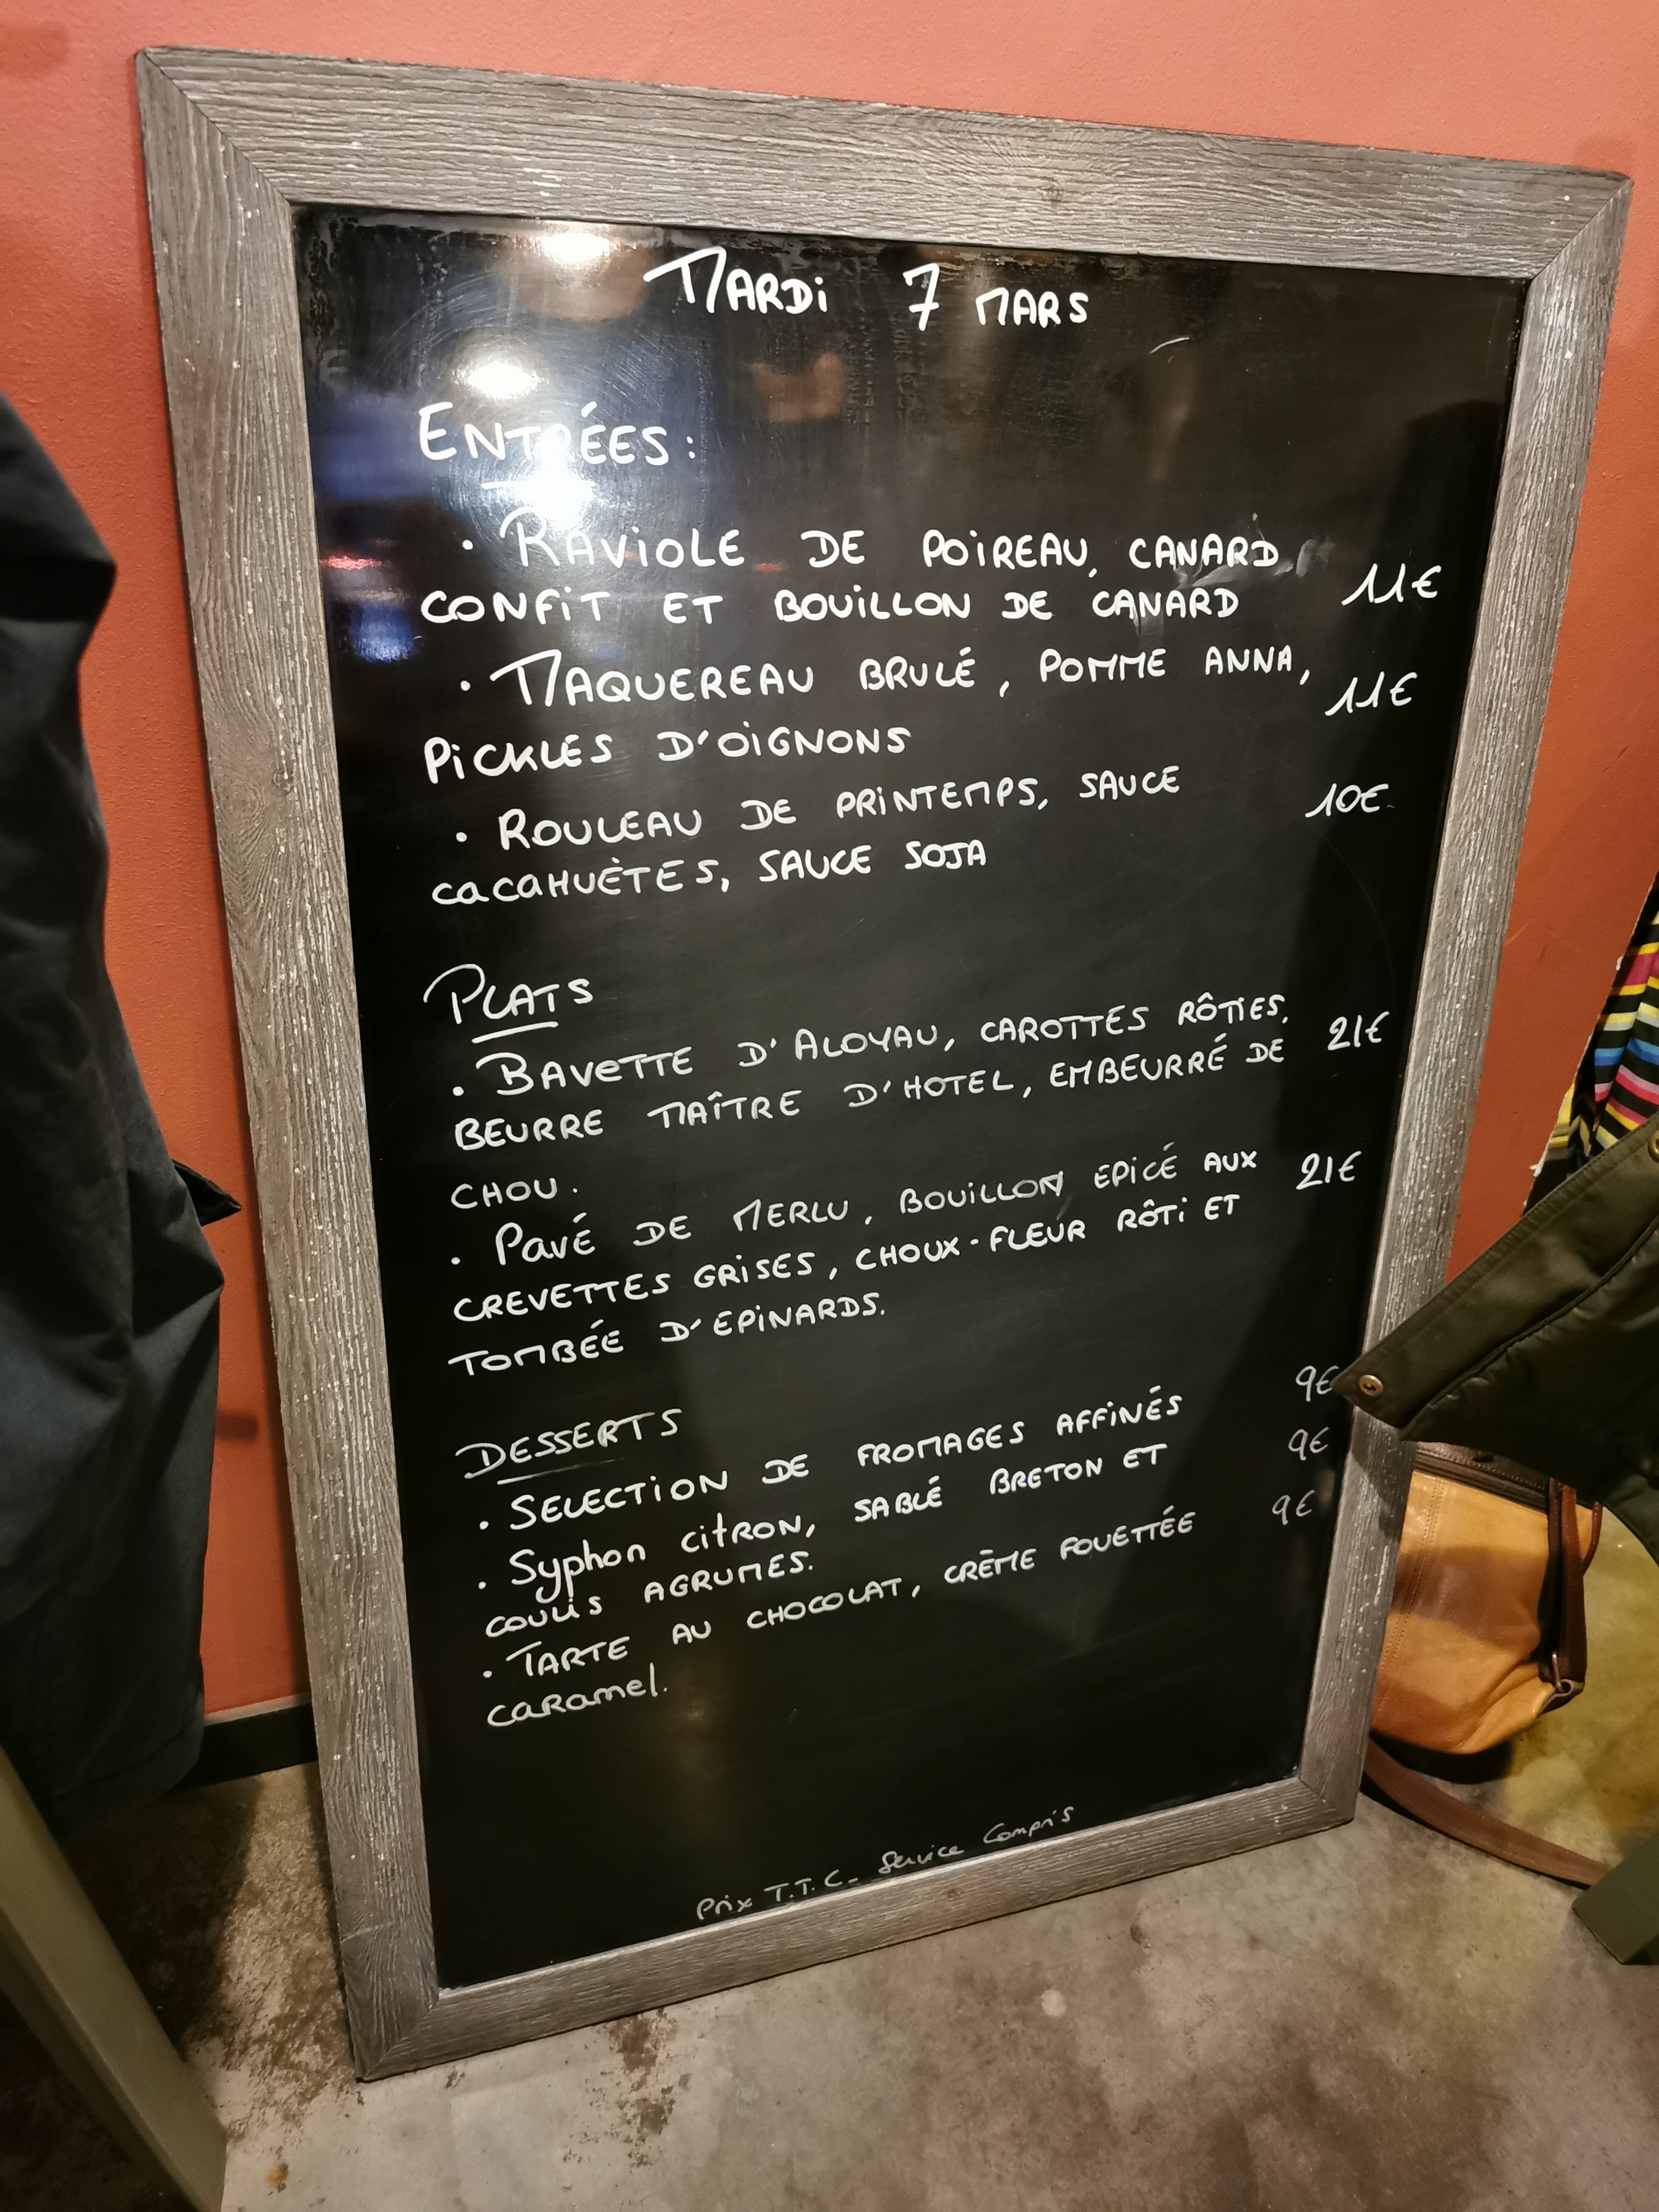 MARDI 7 MARS
ENTRÉES:
• RAVIOLE DE POIREAU, CANARD
CONFIT ET BOUILLON DE CANARD 11€
• MAQUEREAU BRULÉ, POMME ANNA, 11€
PICKLES D'OIGNONS
• ROULEAU DE PRINTEMPS, SAUCE 10€
CACAHUÈTES, SAUCE SOJA
PLATS
• BAVETTE D'ALOYAU, CAROTTES RÔTIES, 21€
BEURRE MAÎTRE D'HOTEL, EMBEURRÉ DE
CHOU.
• PAVÉ DE MERLU, BOUILLON EPICÉ AUX 21€
CREVETTES GRISES, CHOUX-FLEUR RÔTI ET
TOMBÉE D'EPINARDS.
DESSERTS
• SELECTION DE FROMAGES AFFINÉS 9€
• Syphon citRON, SABLÉ BRETON ET 9€
COULIS AGRUMES.
• TARTE AU CHOCOLAT, CRÈME FOUETTÉE 9€
caRamel.
Prix T.T.C. Service Compris